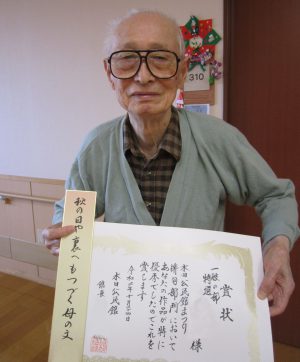 310
賞状
一般の部
特選
様
公民館まつり
俳句部門において
あなたの作品が特に
優秀でしたのでこれを
賞します
令和
公民館
館長
秋の日や裏へもつづく母の文